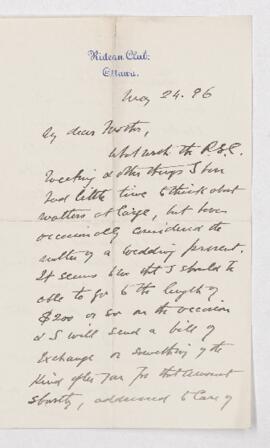 Rideau Club.
Ottawa.
May 24. 96
My dear Mother,
What with the R.S.C.
meeting & other things I have
had little time to think about
matters at large, but have
occasionally considered the
matter of a wedding present.
It seems to me that I should be
able to go to the length of
$200 or so on the occasion
& I will send a bill of
Exchange or something of the
kind after you for that amount
shortly, addressed to care of